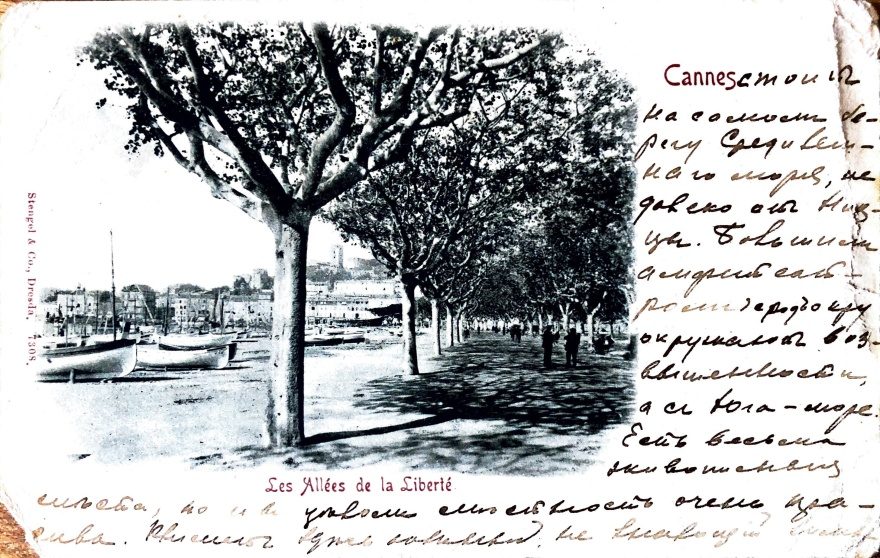 Cannes стоитъ
на самомъ бе-
регу Средизем-
наго моря, не
далеко отъ Ниц-
цы. Большимъ
амфитеат-
ромъ
окружаютъ воз-
вышенности,
а съ Юга - море
Есть весьма
живописныя
мѣста, но и въ цѣломъ мѣстность очень кра-
сива. не
Les Allées de la Liberté
Stengel & Co., Dresda, 7308.